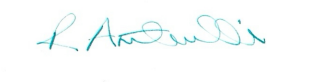 R Antonelli